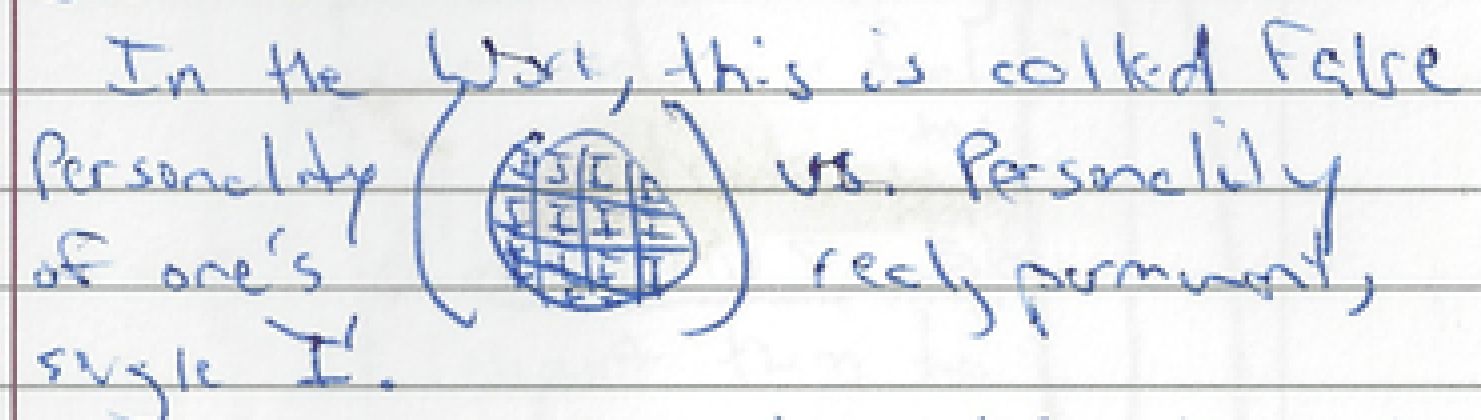 In the Work, this is called False
Personality ( I I I I I I I I I I I ) vs. Personality
of one's real, permanent,
single 'I'.